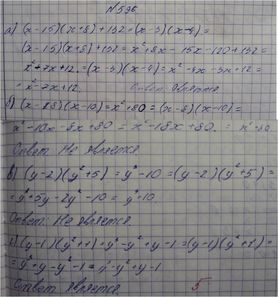 №596
а) (x-15)(x+8)+132=(x-3)(x-4)=
(x-15)(x+8)+132=x²+8x-15x-120+132=
x²+7x+12.=(x-3)(x-4)=x²-4x-3x+12=
x²-7x+12. Ответ: является
(x-8)(x-10)=x²+80=(x-8)(x-10)=
x²-10x-8x+80=x²-18x+80.
Ответ: Не является
в) (y-2)(y²+5)=y³-10=(y-2)(y²+5)=
=y³+5y-2y²-10=y³+10
Ответ: Не является.
г) (y-1)(y²+1)=y³-y²+y-1=(y-1)(y²+1)=
=y³+y-y²-1=y³-y²+y-1
Ответ: является 5